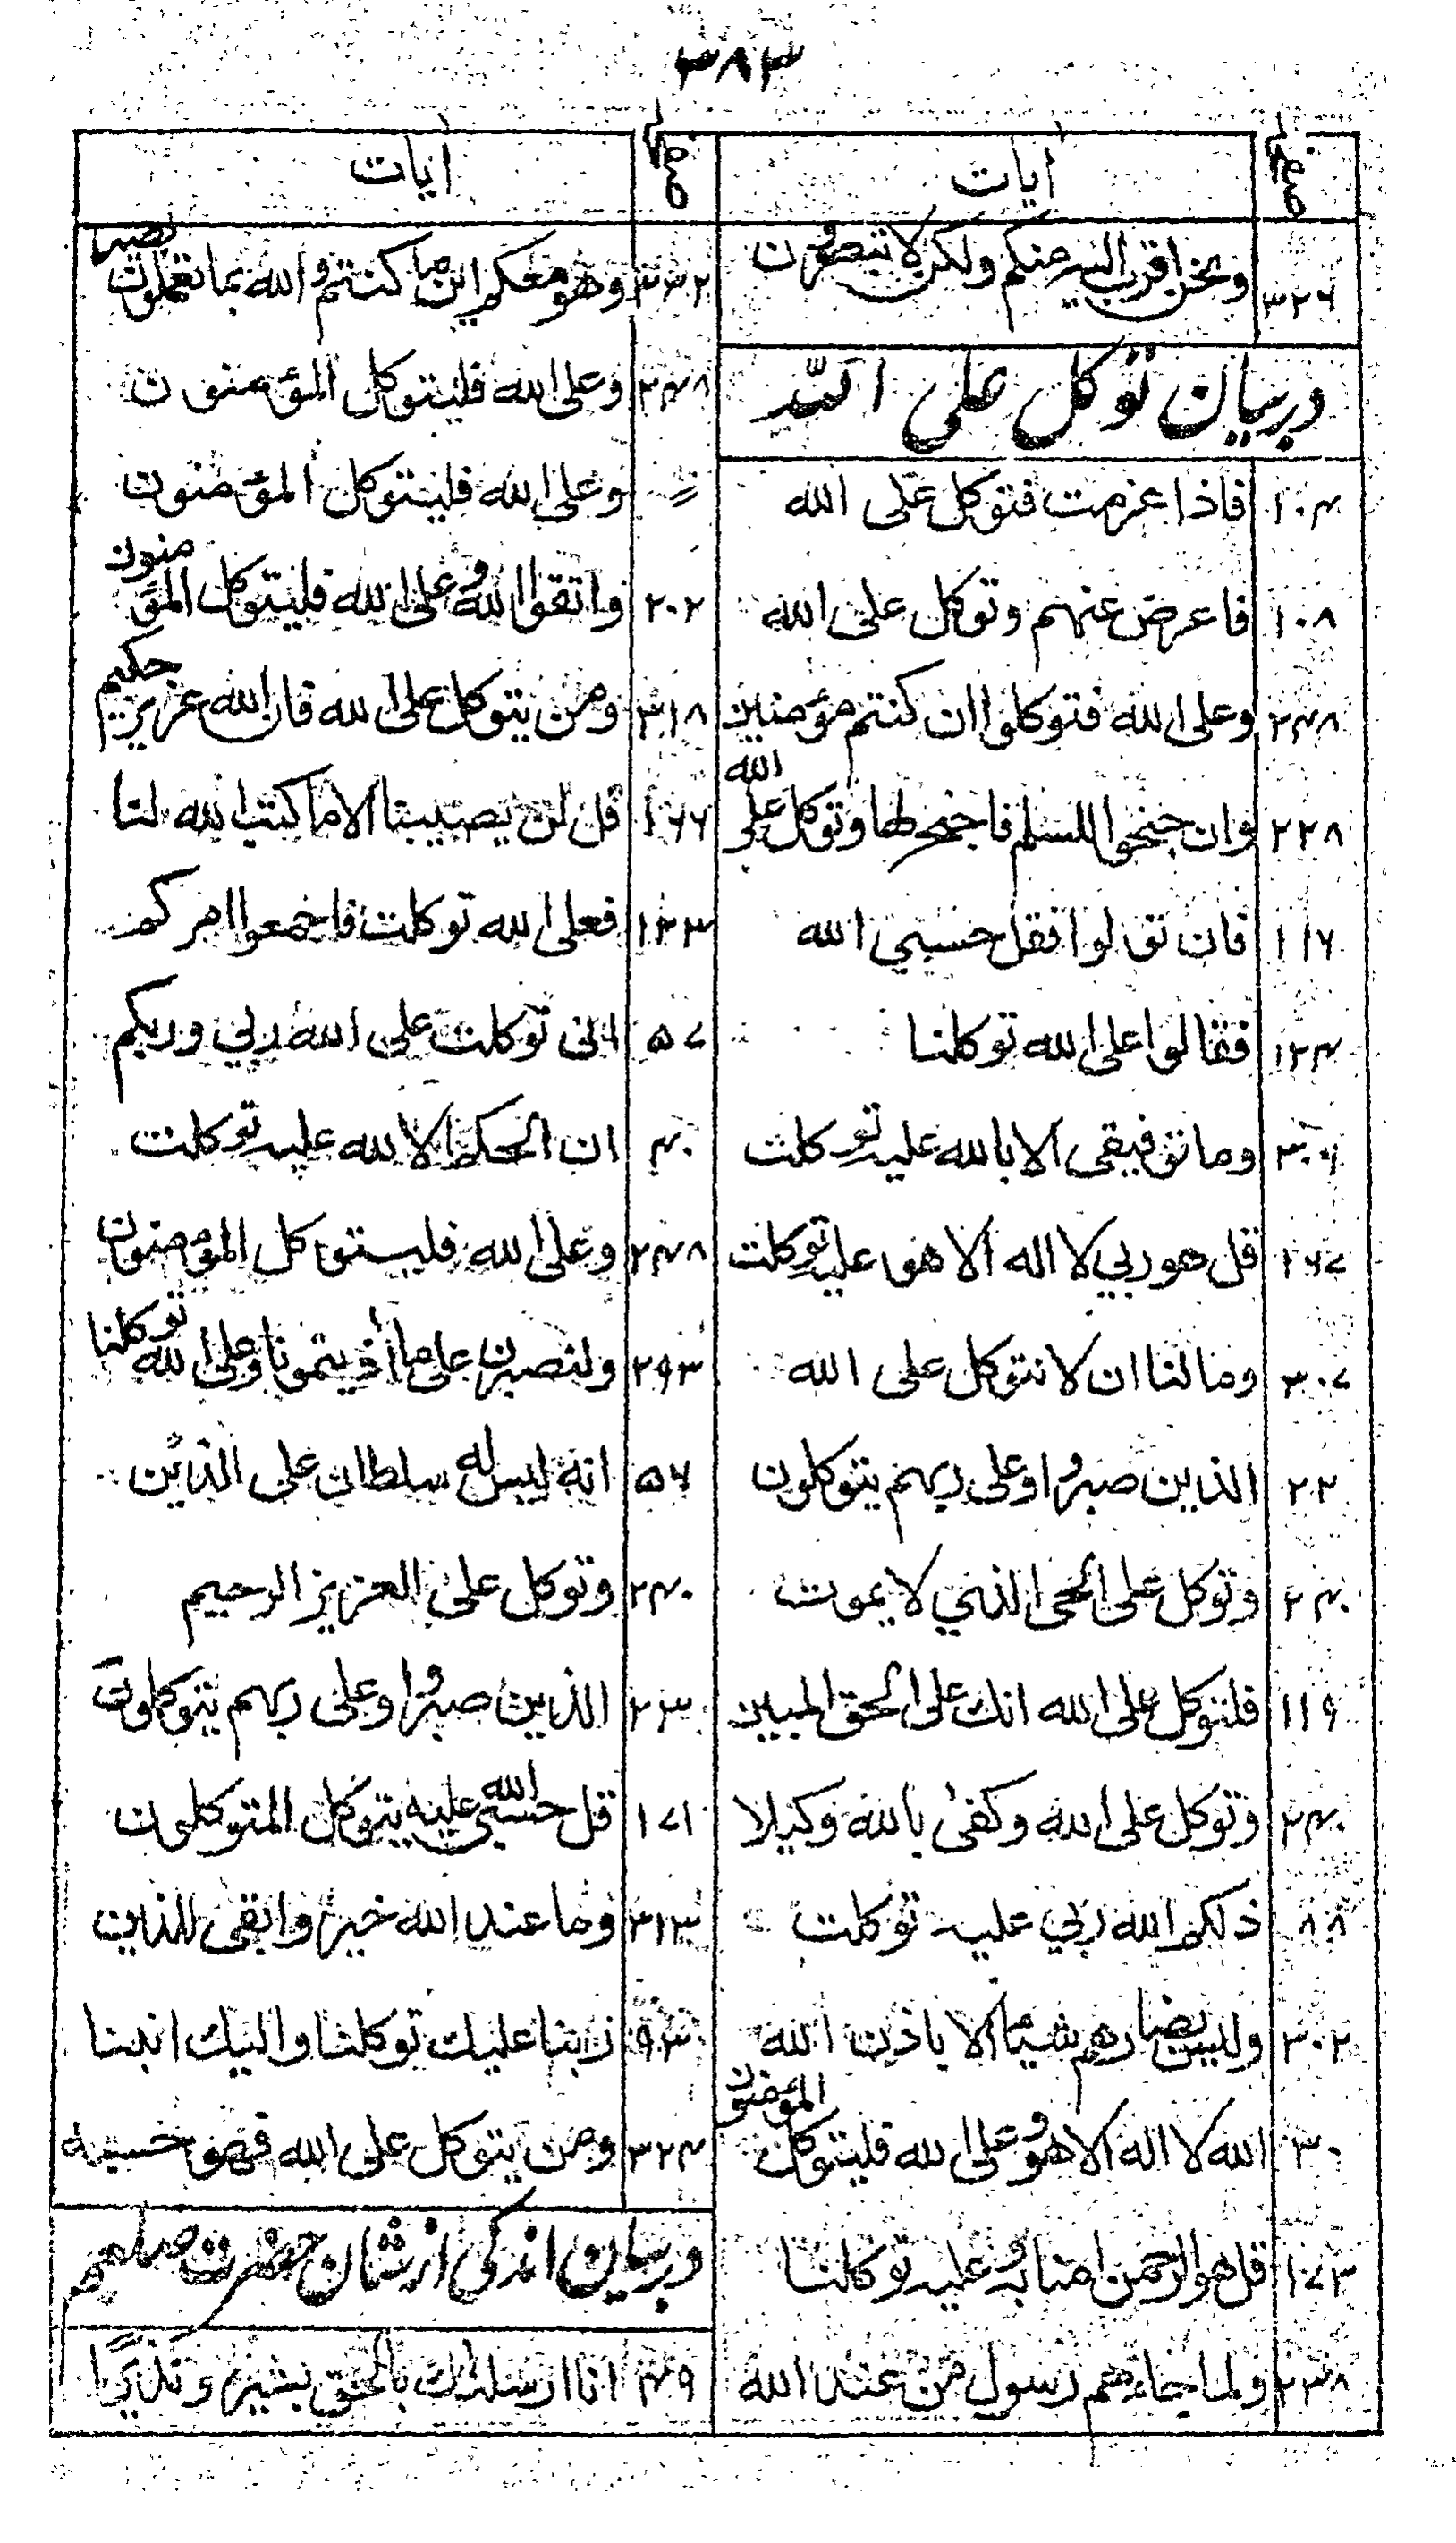 ۳۸۳
صفحه ایات
۳۲۶ ونحن اقرب اليه منكم ولكن لا تبصرون
دربیان توکل علی اللہ
۱۰۴ فاذا عزمت فتوكل على الله
۱۰۸ فاعرض عنهم وتوكل على الله
۲۴۸ وعلى الله فتوكلوا ان كنتم مؤمنين
۲۲۸ وان جنحوا للسلم فاجنح لها وتوكل على الله
۱۱۶ فان تولوا فقل حسبي الله
۱۲۴ فقالوا على الله توكلنا
۳۰۶ وما توفيقى الا بالله عليه توكلت
۱۶۷ قل هو ربي لا اله الا هو عليه توكلت
۳۰۷ وما لنا ان لا نتوكل على الله
۲۲ الذين صبروا وعلى ربهم يتوكلون
۲۴۰ وتوكل على الحى الذي لا يموت
۱۱۶ فلتوكل على الله انك على الحق المبين
۲۴۰ وتوكل على الله وكفى بالله وكيلا
۸۸ ذلكم الله ربي عليه توكلت
۳۰۲ وليس بضارهم شيئا الا باذن الله
۳۰ الله لا اله الا هو وعلى الله فليتوكل المؤمنون
۱۷۳ قل هو الرحمن امنا به وعليه توكلنا
۲۳۸ ولما جاءهم رسول من عند الله
صفحه ایات
۳۳۲ وهو معكم اين ما كنتم والله بما تعملون بصير
۲۴۸ وعلى الله فليتوكل المؤمنون
وعلى الله فليتوكل المؤمنون
۲۰۲ واتقوا الله وعلى الله فليتوكل المؤمنون
۳۱۸ ومن يتوكل على الله فان الله عزيز حكيم
۱۶۶ قل لن يصيبنا الا ما كتب الله لنا
۱۲۳ فعلى الله توكلت فاجمعوا امركم
۵۷ انى توكلت على الله ربي وربكم
۴۰ ان الحكم الا لله عليه توكلت
۲۴۸ وعلى الله فليتوكل المؤمنون
۲۹۳ ولنصبرن على ما اذيتمونا وعلى الله توكلنا
۵۶ انه ليس له سلطان على الذين
۲۴۰ وتوكل على العزيز الرحيم
۲۳ الذين صبروا وعلى ربهم يتوكلون
۱۷۱ قل حسبي الله عليه يتوكل المتوكلون
۳۱۳ وما عند الله خير وابقى للذين
۹۳ ربنا عليك توكلنا واليك انبنا
۳۲۴ ومن يتوكل على الله فهو حسبه
دربیان اندکی از شان حضرت صلعم
۴۹ انا ارسلناك بالحق بشيرا ونذيرا